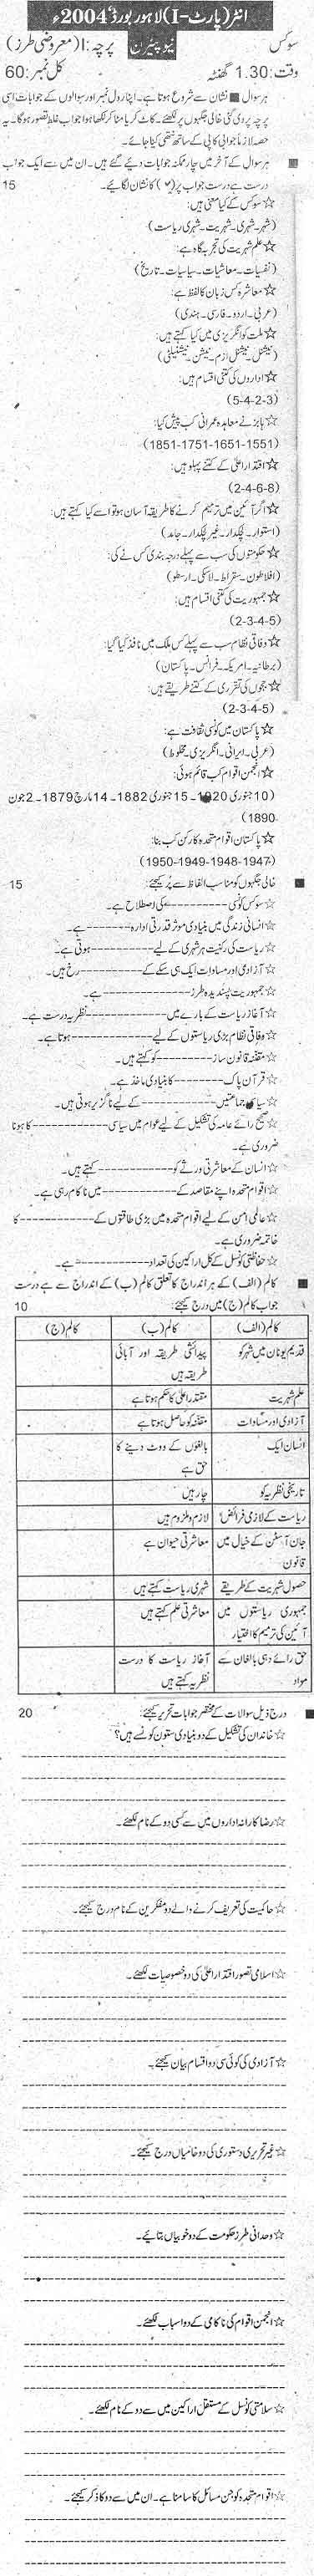 انٹر(پارٹ-I)لاہور بورڈ2004ء
سوکس نیو پیٹرن پرچہ:I(معروضی طرز)
وقت:1.30 گھنٹہ کل نمبر:60
ہر سوال ■ نشان سے شروع ہوتا ہے۔ اپنا رول نمبر اور سوالوں کے جوابات اسی
پرچہ پر دی گئی خالی جگہوں پر لکھئے۔ کاٹ کر یا مٹا کر لکھا ہوا جواب غلط تصور ہوگا۔ یہ
حصہ لازماً جوابی کاپی کے ساتھ نتھی کیا جائے۔
■ ہر سوال کے آخر میں چار ممکنہ جوابات دیئے گئے ہیں۔ ان میں سے ایک جواب
درست ہے درست جواب پر(✓) کا نشان لگائیے۔ 15
☆سوکس کے کیا معنی ہیں:
(شہر۔شہری۔شہریت۔شہری ریاست)
☆علم شہریت کی تجربہ گاہ ہے:
(نفسیات۔معاشیات۔سیاسیات۔تاریخ)
☆معاشرہ کس زبان کا لفظ ہے:
(عربی۔اردو۔فارسی۔ہندی)
☆ملت کو انگریزی میں کیا کہتے ہیں:
(نیشنل۔نیشنل ازم۔نیشن۔نیشنیلٹی)
☆اداروں کی کتنی اقسام ہیں:
(5-4-2-3)
☆ہابز نے معاہدہ عمرانی کب پیش کیا:
(1851-1751-1651-1551)
☆اقتدار اعلیٰ کے کتنے پہلو ہیں:
(2-4-6-8)
☆اگر آئین میں ترمیم کرنے کا طریقہ آسان ہو تو اسے کیا کہتے ہیں:
(استوار۔لچکدار۔غیر لچکدار۔جامد)
☆حکومتوں کی سب سے پہلے درجہ بندی کس نے کی:
(افلاطون۔سقراط۔لاسکی۔ارسطو)
☆جمہوریت کی کتنی اقسام ہیں:
(2-3-4-5)
☆وفاقی نظام سب سے پہلے کس ملک میں نافذ کیا گیا:
(برطانیہ۔امریکہ۔فرانس۔پاکستان)
☆ججوں کی تقرری کے کتنے طریقے ہیں:
(2-3-4-5)
☆پاکستان میں کونسی ثقافت ہے:
(عربی۔ایرانی۔انگریزی۔مخلوط)
☆انجمن اقوام کب قائم ہوئی:
(10 جنوری 1920۔ 15 جنوری 1882۔ 14 مارچ 1879۔ 2 جون
1890)
☆پاکستان اقوام متحدہ کا رکن کب بنا:
(1950-1949-1948-1947)
■ خالی جگہوں کو مناسب الفاظ سے پُر کیجئے: 15
☆سوکس کونسی ---------- کی اصطلاح ہے۔
☆انسانی زندگی میں بنیادی موثر قدرتی ادارہ ---------- ہے۔
☆ریاست کی رکنیت ہر شہری کے لیے ---------- ہوتی ہے۔
☆آزادی اور مساوات ایک ہی سکے کے ---------- رخ ہیں۔
☆جمہوریت پسندیدہ طرز ---------- ہے۔
☆آغاز ریاست کے بارے میں ---------- نظریہ درست ہے۔
☆وفاقی نظام بڑی ریاستوں کے لیے ---------- ہوتا ہے۔
☆مقننہ قانون ساز ---------- کو کہتے ہیں۔
☆قرآن پاک ---------- کا بنیادی ماخذ ہے۔
☆سیاسی جماعتیں ---------- کے لیے ناگزیر ہوتی ہیں۔
☆صحیح رائے عامہ کی تشکیل کے لیے عوام میں سیاسی ---------- کا ہونا
ضروری ہے۔
☆انسان کے معاشرتی ورثے کو ---------- کہتے ہیں۔
☆اقوام متحدہ اپنے مقاصد کے ---------- میں ناکام رہی ہے۔
☆عالمی امن کے لیے اقوام متحدہ میں بڑی طاقتوں کے ---------- کا
خاتمہ ضروری ہے۔
☆حفاظتی کونسل کے کل اراکین کی تعداد ---------- ہے۔
■ کالم (الف) کے ہر اندراج کا تعلق کالم (ب) کے اندراج سے ہے درست
جواب کالم (ج) میں درج کیجئے: 10
کالم(الف) کالم(ب) کالم(ج)
قدیم یونان میں شہر کو پیدائشی طریقہ اور آبائی
طریقہ ہیں
علم شہریت مقتدر اعلیٰ کا حکم ہوتا ہے
آزادی اور مساوات مقننہ کو حاصل ہوتا ہے
انسان ایک بالغوں کے ووٹ دینے کا
حق ہے
تاریخی نظریہ کو چار ہیں
ریاست کے لازمی فرائض لازم و ملزوم ہیں
جان آسٹن کے خیال میں معاشرتی حیوان ہے
قانون
حصول شہریت کے طریقے شہری ریاست کہتے ہیں
جمہوری ریاستوں میں معاشرتی علم کہتے ہیں
آئین کی ترمیم کا اختیار
حق رائے دہی بالغان سے آغاز ریاست کا درست
مراد نظریہ کہتے ہیں
■ درج ذیل سوالات کے مختصر جوابات تحریر کیجئے: 20
☆خاندان کی تشکیل کے دو بنیادی ستون کونسے ہیں؟
☆رضا کارانہ اداروں میں سے کسی دو کے نام لکھئے۔
☆حاکمیت کی تعریف کرنے والے دو مفکرین کے نام درج کیجئے۔
☆اسلامی تصور اقتدار اعلیٰ کی دو خصوصیات لکھئے۔
☆آزادی کی کوئی سی دو اقسام بیان کیجئے۔
☆غیر تحریری دستور کی دو خامیاں درج کیجئے۔
☆وحدانی طرز حکومت کے دو خوبیاں بتائیے۔
☆انجمن اقوام کی ناکامی کے دو اسباب لکھئے۔
☆سلامتی کونسل کے مستقل اراکین میں سے دو کے نام لکھئے۔
☆اقوام متحدہ کو جن مسائل کا سامنا ہے۔ ان میں سے دو کا ذکر کیجئے۔